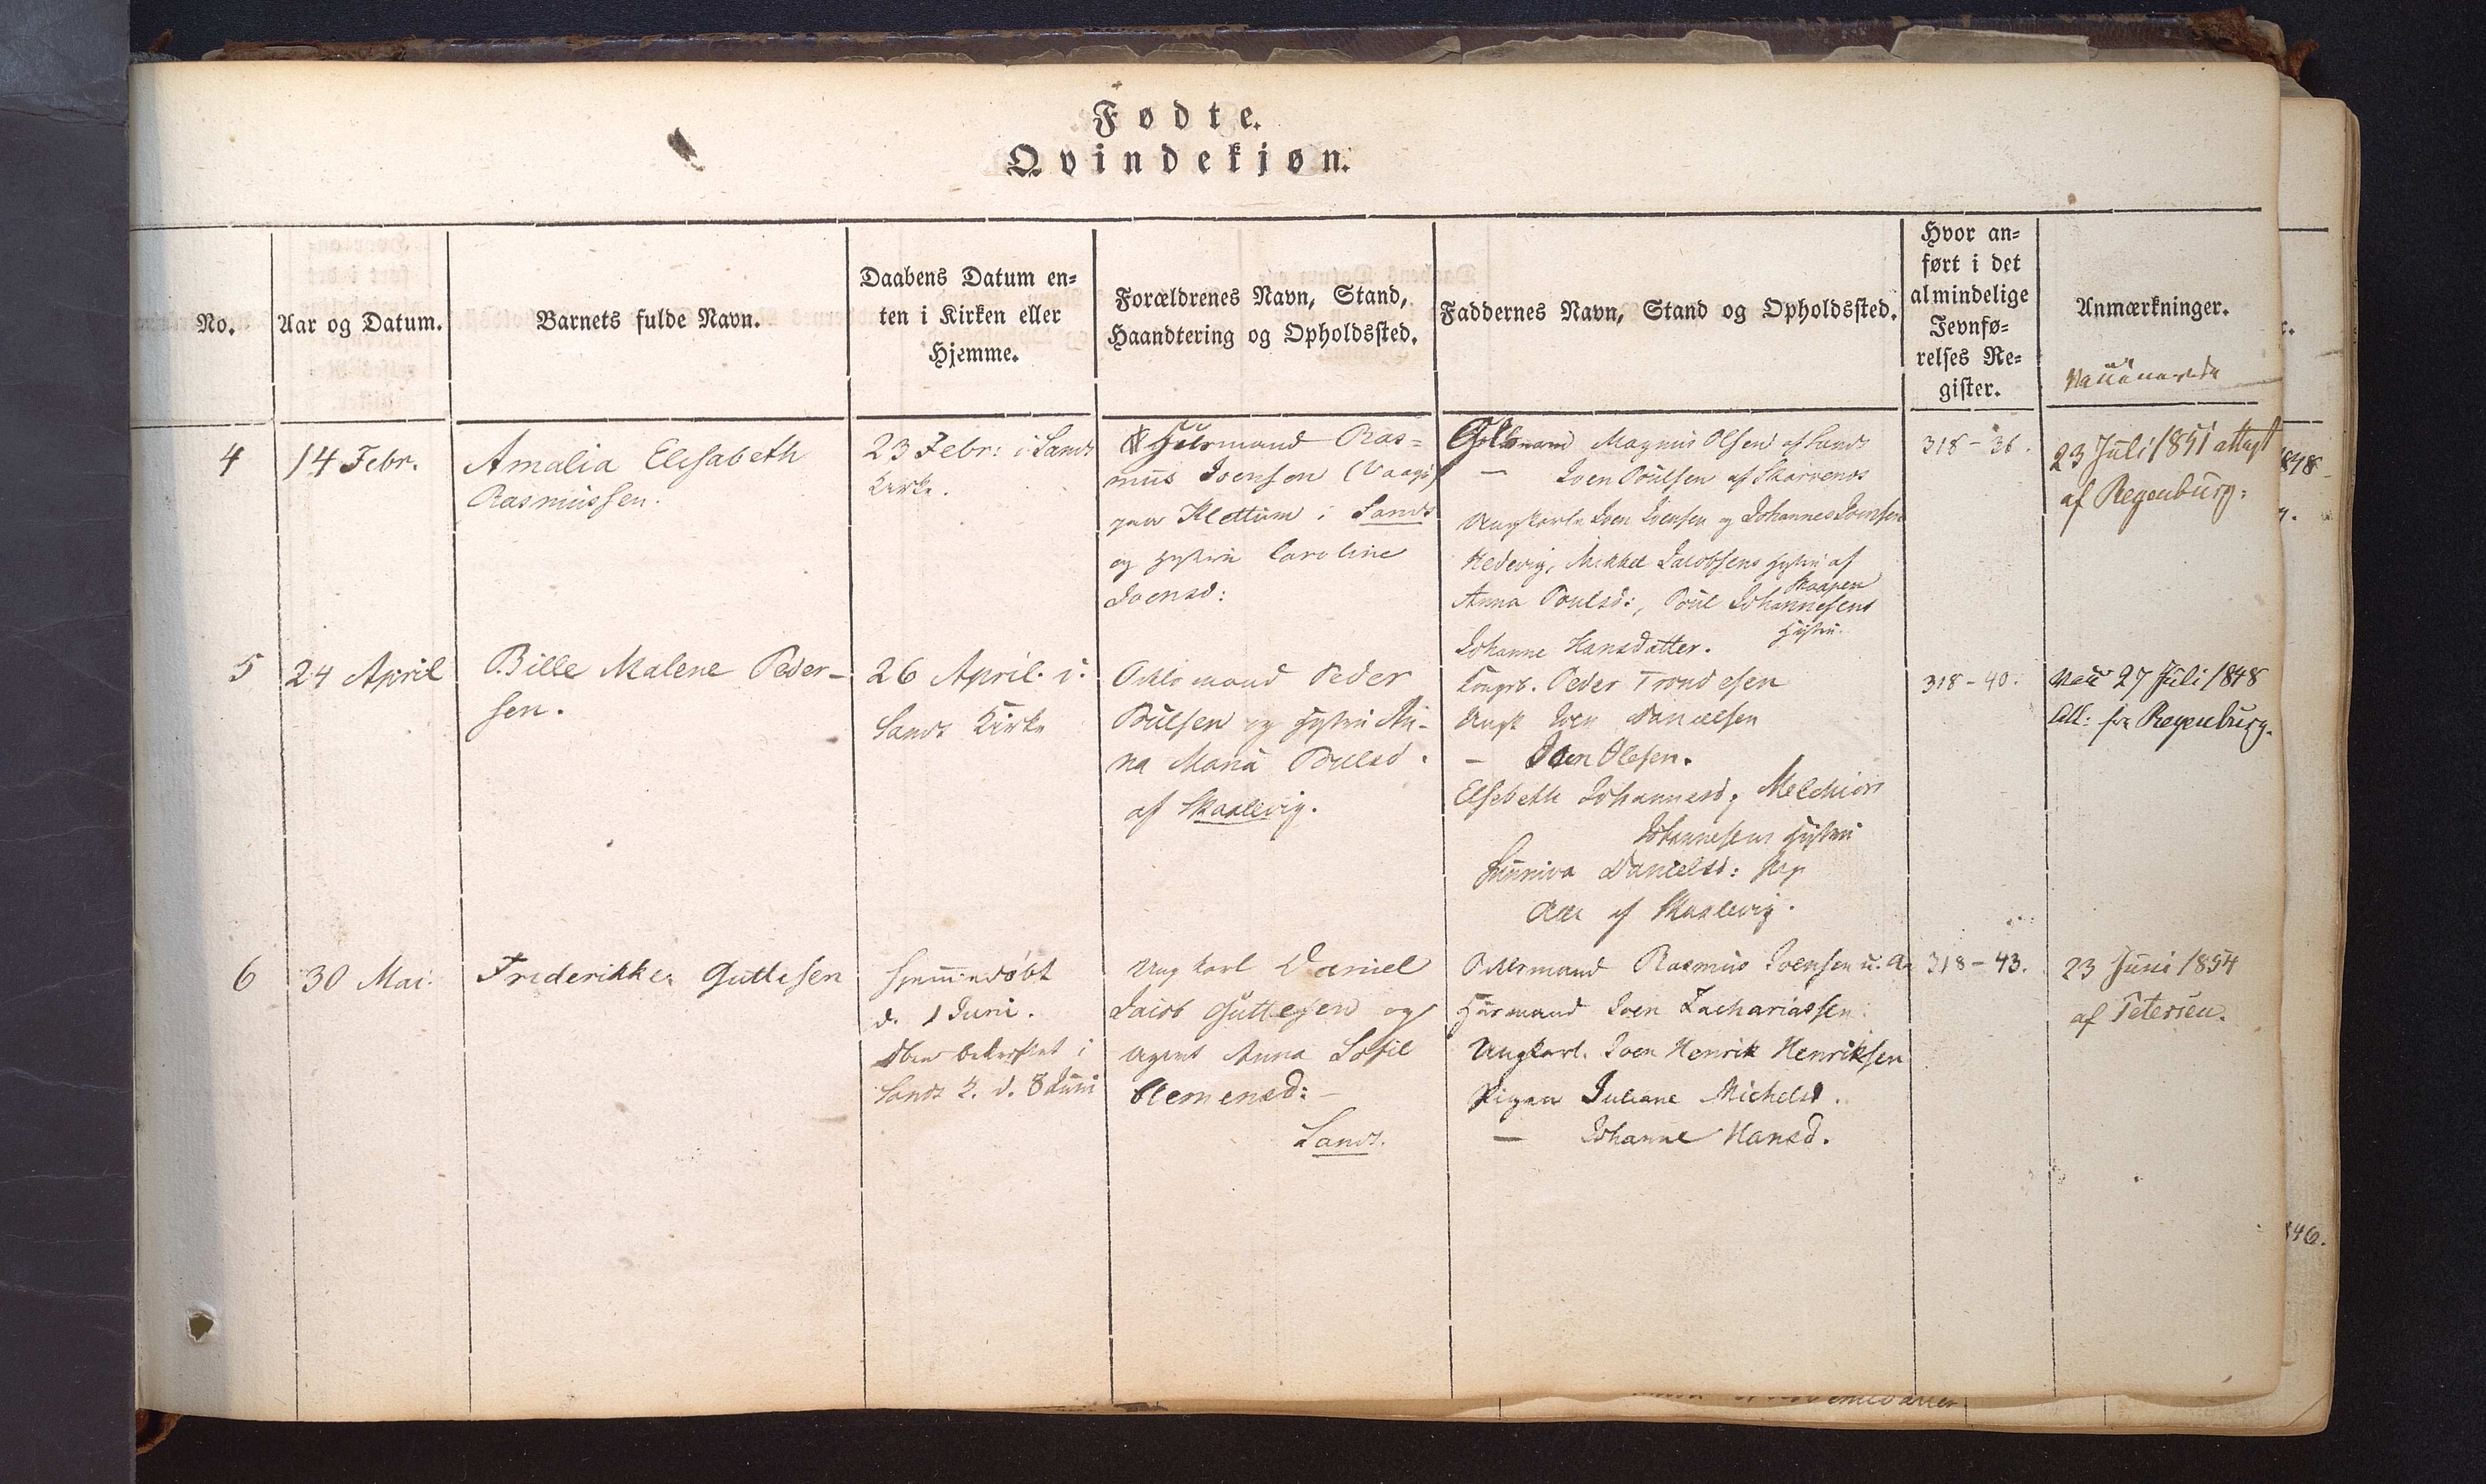 Fødte.
Qvindekjøn.
No.
Aar og Datum.
Barnets fulde Navn.
Daabens Datum en=
ten i Kirken eller
Hjemme.
Forældrenes Navn, Stand,
Haandtering og Opholdssted.
Faddernes Navn, Stand og Opholdssted.
Hvor an=
ført i det
almindelige
Jevnfø=
relses Re=
gister.
Anmærkninger.
4
14 Febr.
Amalia Elisabeth
Rasmussen.
23 Febr: i Sands
Kirke.
Huusmand Ras=
mus Joensen (Vaagø)
paa Klettum i Sand
og Hustru Caroline
Joensd:
Magnus Olsen af Sands
— Joen Poulsen af Skarvenes
Ungkarle Joen Joensen og Johannes Joensen
Hedevig, Mikkel Jacobsens Hustru af
Skaapen
Anna Poulsd:, Poul Johannesens
Hustru.
Johanne Hansdatter.
318 - 36.
23 Juli 1851 attest
af Regenburg.
5
24 April
Bille Malene Peder-
sen.
26 April. i.
Sands Kirke
Peder
Poulsen og Hustru An-
na Maria Poulsd.
af Skaalevig.
Kongsb. Peder Trondesen
Ungk Joen Danielsen
— Joen Olesen.
Elsebeth Johannesd; Melchior
Johannesens Hustru
Sunniva Danielsd: Pige
Alle af Skaalevig.
318 - 40.
Vacc 27 Juli 1848
Att: fra Regenburg.
6
30 Mai.
Friderikke Guttesen
Hjemmedøbt
d. 1 Juni.
Sands K. d. 8 Juni
Ungkarl Daniel
Jacob Guttesen og
Anna Sofie
Clemensd: -
Sand.
Rasmus Joensen
Huusmand Joen Zachariassen
Ungkarl. Joen Henrik Henriksen
Pigen Juliane Michelsd.
— Johanne Hansd.
318 - 43.
23 Juni 1854
af Petersen.
848
846.